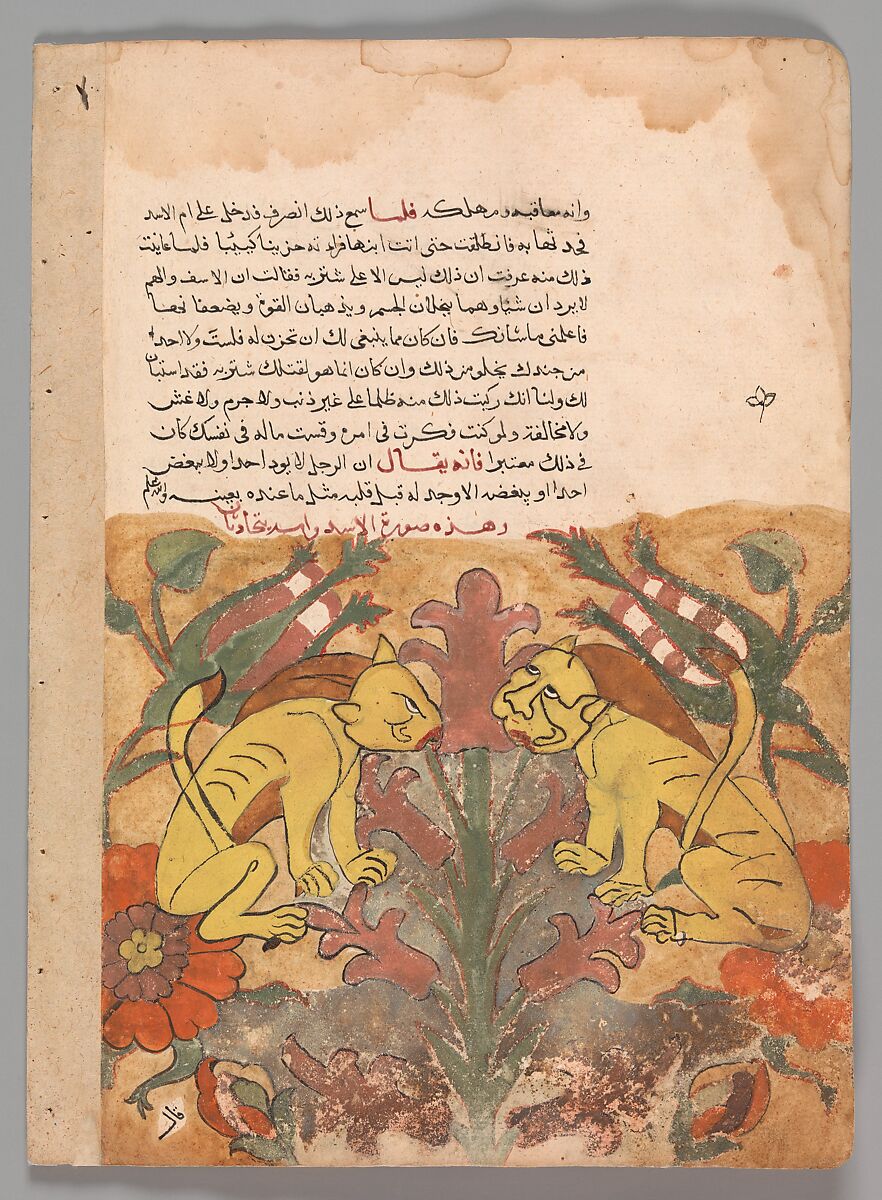 وانه معاقبه ومهلكه فلما سمع ذلك انصرف فدخل على ام الاسد
فحدثها به فانطلقت حتى اتت ابنها فراته حزينا كييبا فلما عاينت
ذلك منه عرفت ان ذلك ليس الا على شتربه فقالت ان الاسف والهم
لا يردان شيا وهما ينحلان الجسم ويذهبان القوة ويضعفانها
فاعلمني ما شانك فان كان مما ينبغي لك ان تحزن له فلست ولا احد
من جندك يخلو من ذلك وان كان انما هو لقتلك شتربه فقد استبان
لك ولنا انك ركبت ذلك منه ظلما على غير ذنب ولا جرم ولا غش
ولا مخالفة ولو كنت فكرت في امره وقست ماله في نفسك كان
في ذلك معتبرا فانه يقال ان الرجل لا يود احدا ولا يبغض
احدا او يبغضه الا وجد له قبل قلبه مثل ما عنده بعينه والله اعلم
وهذه صورة الاسد واسد يتحادثان
قال